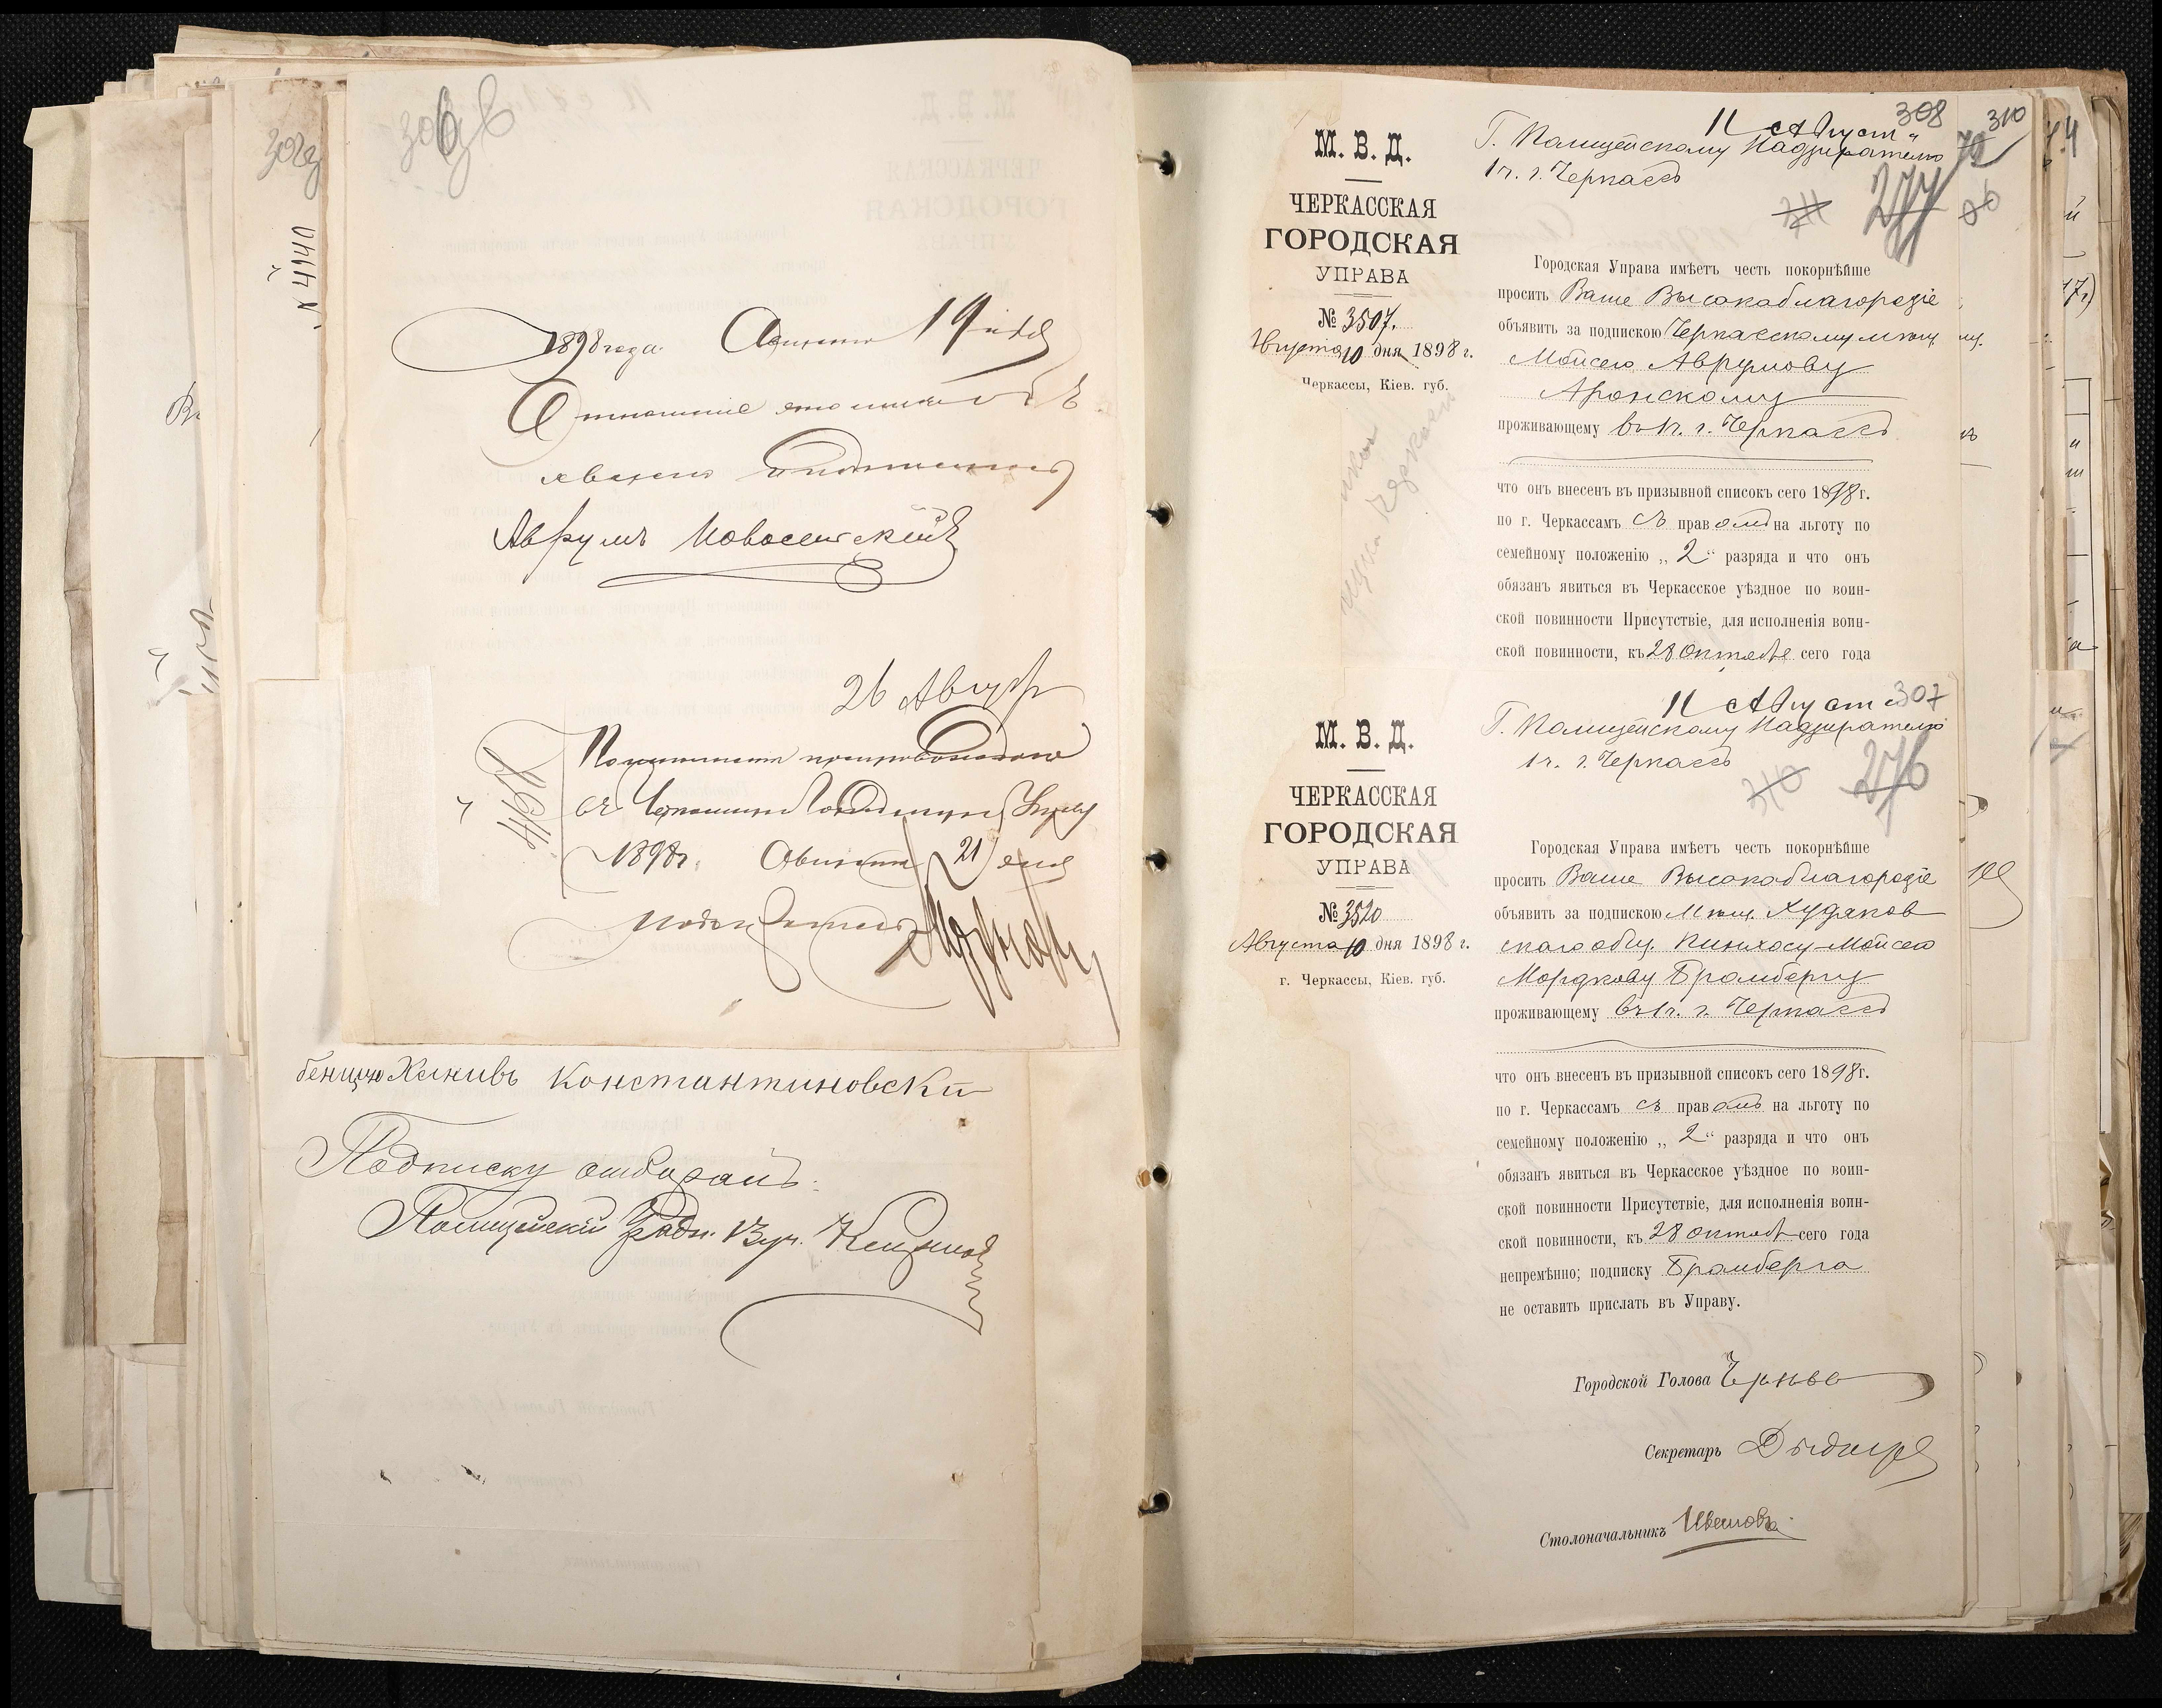 306
302
№ 4140
1898 года Августа 19 дня
Отношение это мне
объявлено
Аврумъ Новосельскій
26 Август
4151
въ Черкасскую Городскую Управу
1898 г. Августа 21 дня
Надзиратель
Хекивъ Константиновски
Подписку отбиралъ
Полицейскій
308
11 Август
Г. Полицейскому Надзирателю
1 ч. г. Черкассъ
310
311
277
М. В. Д.
ЧЕРКАССКАЯ
ГОРОДСКАЯ
УПРАВА
№ 3507.
Августа 10 дня 1898 г.
Черкассы, Кіев. губ.
Городская Управа имѣетъ честь покорнѣйше
просить Ваше Высокоблагородіе
объявить за подпискою Черкасскому мѣщ.
Мойсею Аврумову
Аронскому
проживающему въ 1 ч. г. Черкассъ
что онъ внесенъ въ призывной списокъ сего 1898 г.
по г. Черкассамъ съ правомъ на льготу по
семейному положенію „ 2 “ разряда и что онъ
обязанъ явиться въ Черкасское уѣздное по воин-
ской повинности Присутствіе, для исполненія воин-
ской повинности, къ 28 Октября сего года
307
11 Август
Г. Полицейскому Надзирателю
1 ч. г. Черкассъ
310
276
М. В. Д.
ЧЕРКАССКАЯ
ГОРОДСКАЯ
УПРАВА
№ 3520
Августа 10 дня 1898 г.
г. Черкассы, Кіев. губ.
Городская Управа имѣетъ честь покорнѣйше
просить Ваше Высокоблагородіе
объявить за подпискою Мѣщ. Худяков
скаго общ. Пинхосу-Мойсею
Мордкову Бромбергу
проживающему въ 1 ч. г. Черкассъ
что онъ внесенъ въ призывной списокъ сего 1898 г.
по г. Черкассамъ съ правомъ на льготу по
семейному положенію „ 2 “ разряда и что онъ
обязанъ явиться въ Черкасское уѣздное по воин-
ской повинности Присутствіе, для исполненія воин-
ской повинности, къ 28 октяб сего года
непремѣнно; подписку Бромберга
не оставить прислать въ Управу.
Городской Голова
Секретарь
Столоначальникъ Ивановъ